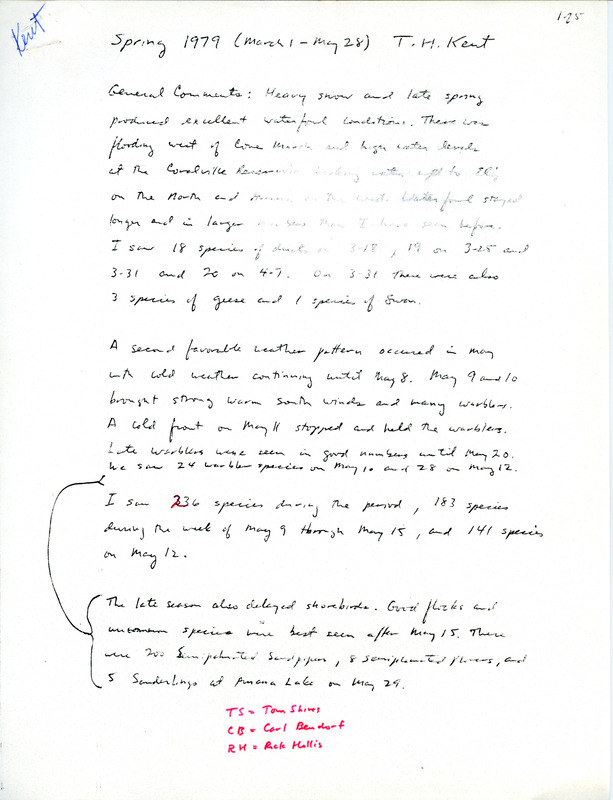 Kent
1-25
Spring 1979 (March 1 - May 28) T. H. Kent
General Comments: Heavy snow and late spring
produced excellent waterfowl conditions. There was
flooding west of Cone Marsh and high water levels
at the Coralville Reservoir backing water up to
on the North and Amana on the west. Waterfowl stayed
longer and in larger numbers than I have seen before.
I saw 18 species of ducks on 3-18, 19 on 3-25 and
3-31 and 20 on 4-7. On 3-31 there were also
3 species of geese and 1 species of Swan.
A second favorable weather pattern occured in May
with cold weather continuing until May 8. May 9 and 10
brought strong warm south winds and many warblers.
A cold front on May 11 stopped and held the warblers.
Late warblers were seen in good numbers until May 20.
We saw 24 warbler species on May 10 and 28 on May 12.
I saw 236 species during the period, 183 species
during the week of May 9 through May 15, and 141 species
on May 12.
The late season also delayed shorebirds. Good flocks and
uncommon species were best seen after May 15. There
were 200 Semipalmated Sandpipers, 8 Semipalmated Plovers, and
5 Sanderlings at Amana Lake on May 29.
TS = Tom Shires
CB = Carl Bendorf
RH = Rick Hollis